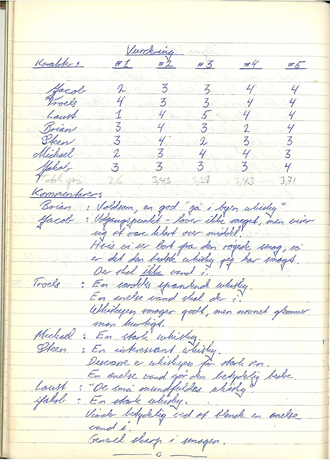 Vurdering
Karakter: #1 #2 #3 #4 #5
Jacob 2 3 3 4 4
Troels 4 3 3 4 4
Laust 1 4 5 4 4
Brian 3 4 3 2 4
Steen 3 4 2 3 3
Michael 2 3 4 4 3
Jakob 3 3 3 3 4
2,6 3,43 3,28 3,43 3,71
Kommentarer:
Brian : Voldsom, en god "gå i byen whisky"
Jacob : Udgangspunkt - lover ikke meget, men viser
sig at være klart over middel.
Hvis vi ser bort fra den røgede smag, så
er det den bedste whisky jeg har smagt.
Der skal ikke vand i.
Troels : En spændende whisky.
En anelse vand skal der i.
Whiskyen smager godt, men man glemmer
man hurtigt.
Michael : En stærk whisky.
Steen : En interessant whisky.
Desværre er whiskyen for stærk ren.
En anelse vand gør den betydelig bedre.
Laust : "De små mundfuldes whisky"
Jakob : En stærk whisky.
Vinder betydelig ved at blande en anelse
vand i.
Generel skarp i smagen.